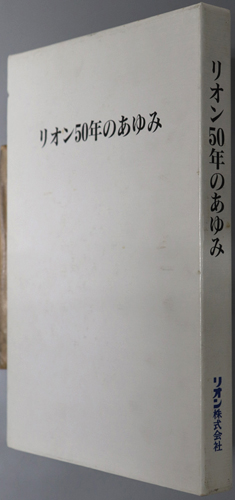 リオン50年のあゆみ
リオン50年のあゆみ
リオン株式会社